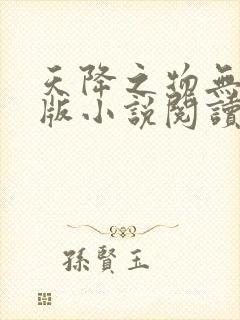 天降之物無
版小說閱讀
孫賢玉